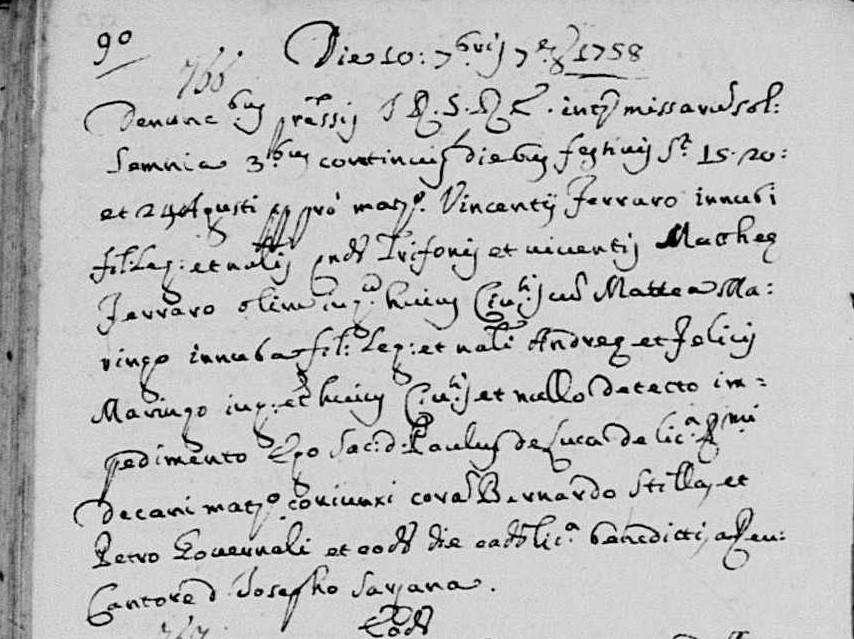 90
766 Die 10: 7bris 7e 1758
Denunc.bus premissis S R. S. R. E. inter missarum sol:
lemnia 3bus continuis diebus festivis St. 15. 20:
et 24 Agusti pro mat.o Vincentij Ferraro innubi
fil: Leg: et nalis qndm Trifonij et viventis Mattheę
Ferraro olim iug. huius Civ.tis cum Mattea Ma:
ringo innuba fil: Leg: et nali Andreę et Felicis
Maringo iug: et huius Civ.tis et nullo detecto im=
pedimento Ego Sac: d. Paulus de Luca de lic.a Rmi
decani mat.o coniunxi coram Bernardo Stilla, et
Petro Governali et eodem die de lic.a benedicti, a Rev:
Cantore d. Josepho Sarzana.
767 Eodem